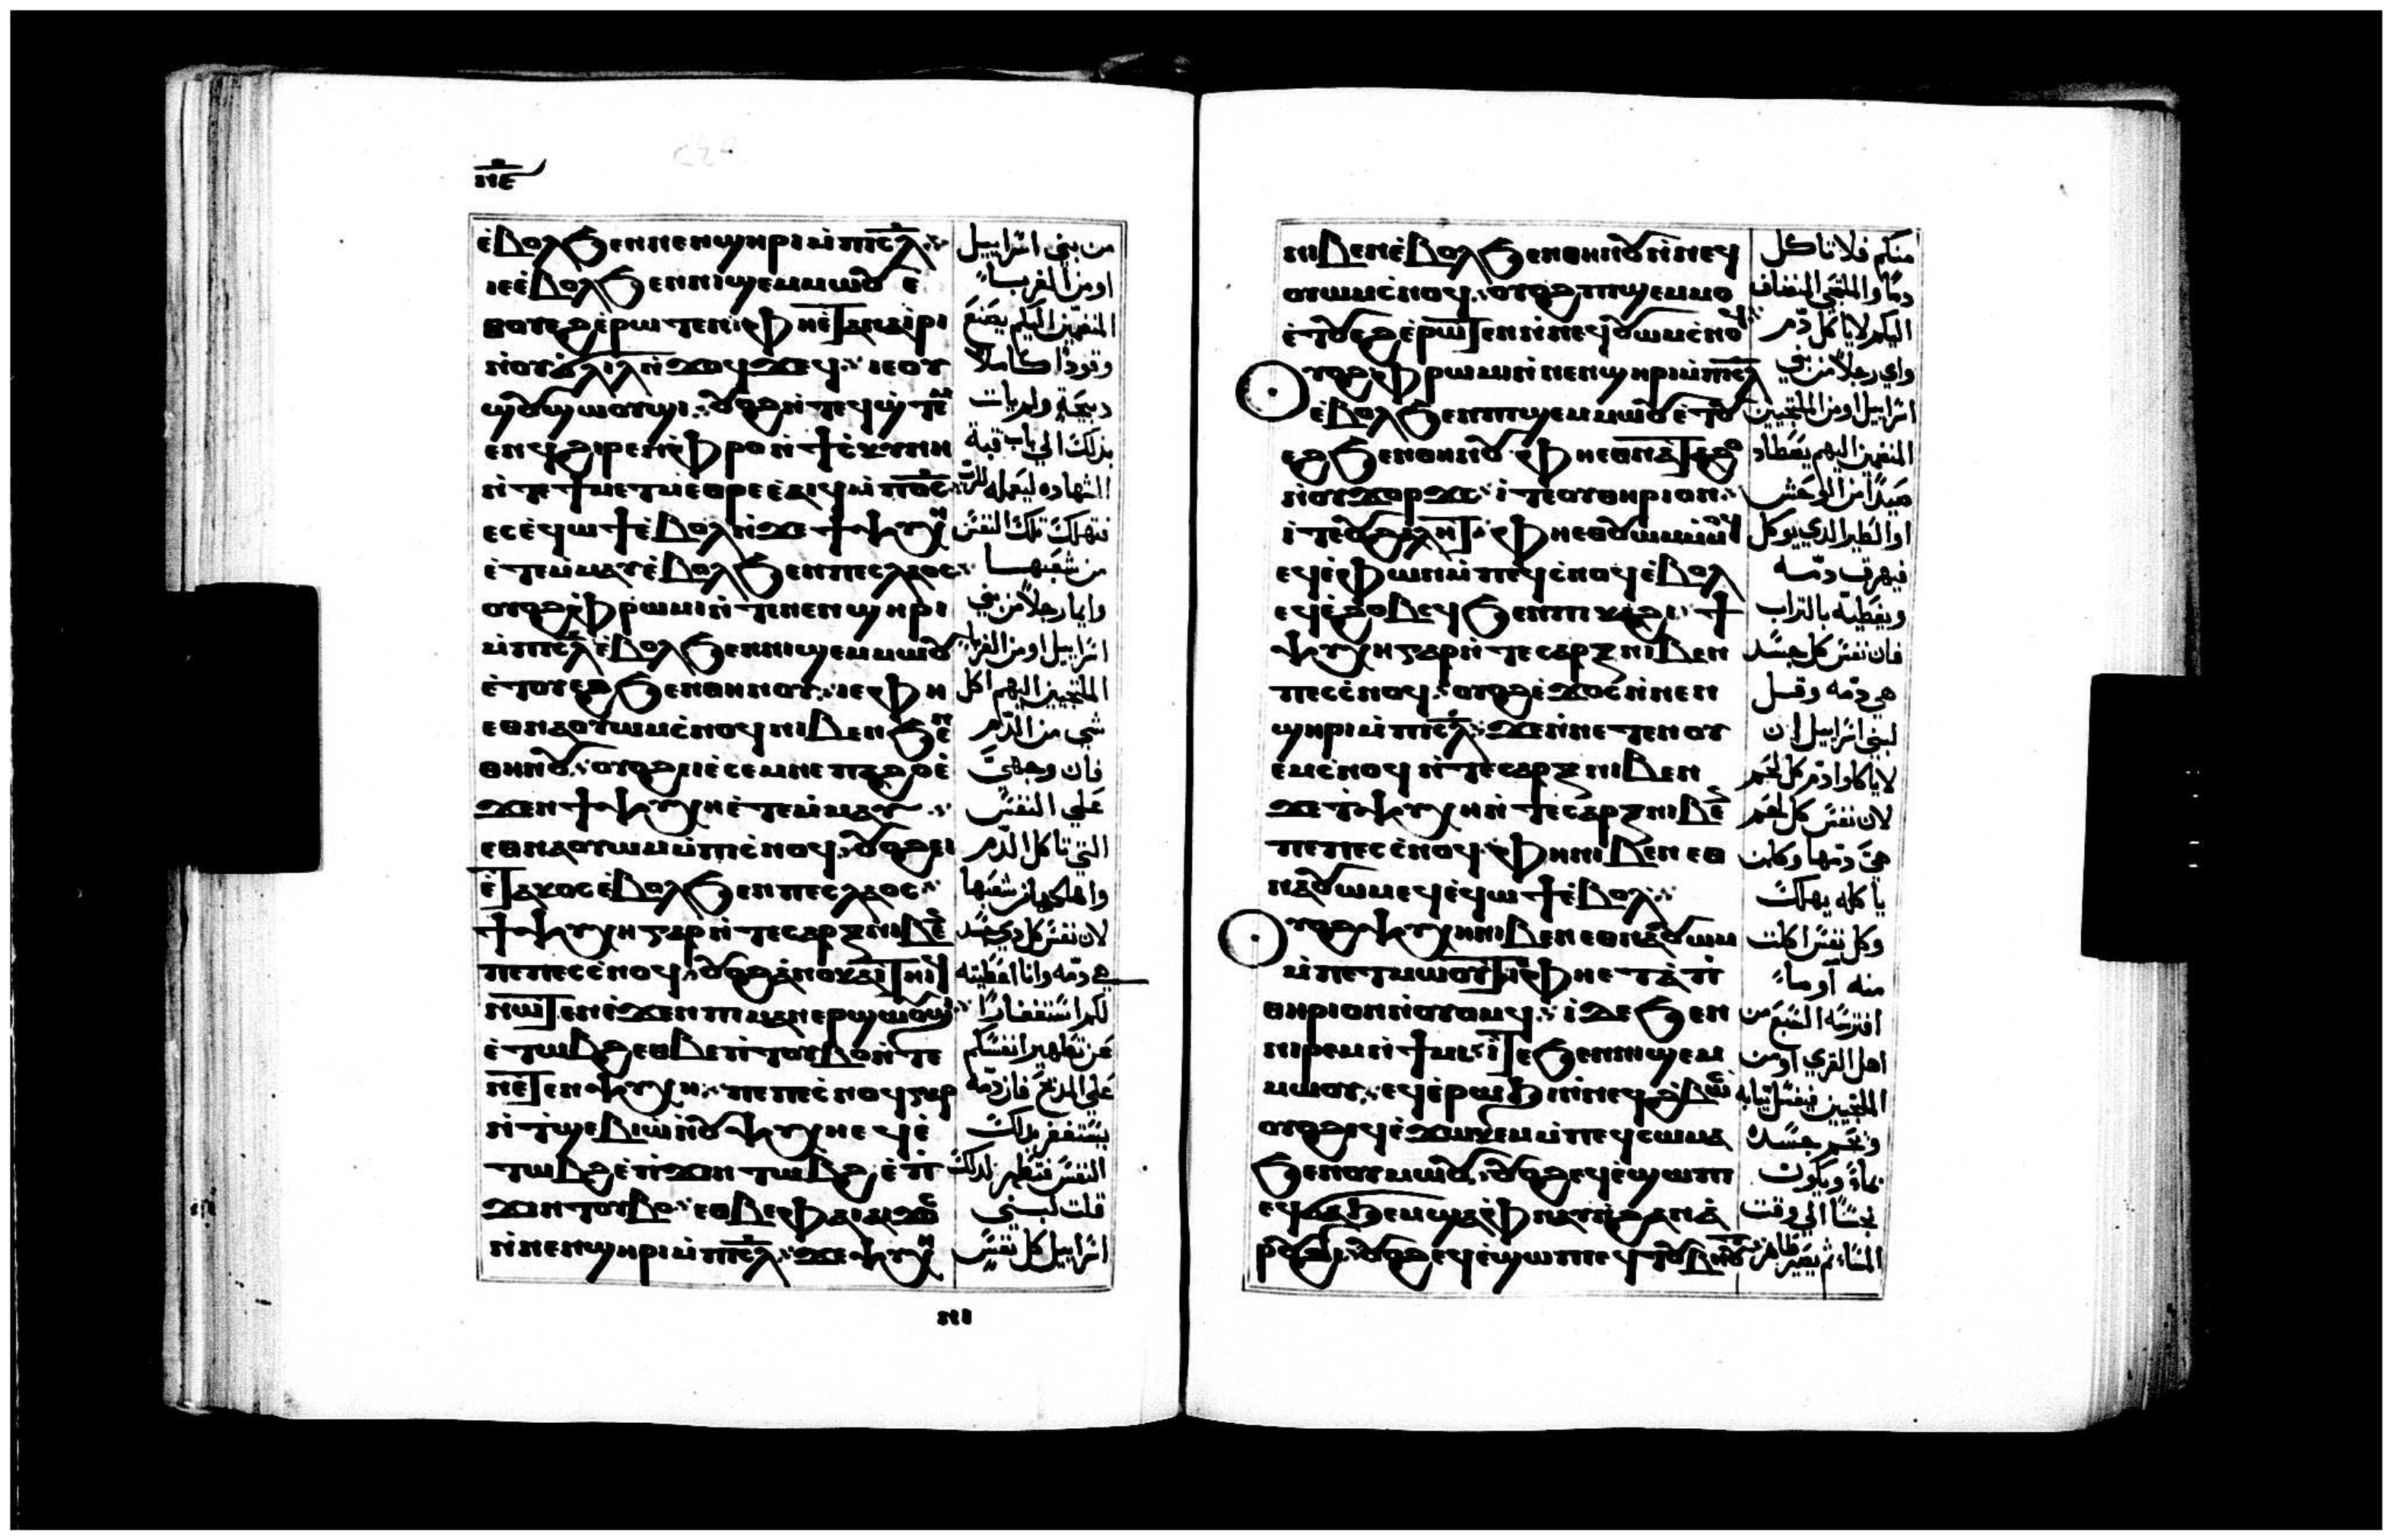 ⲛⲉ
ⲉ̀ⲃⲟⲗϧⲉⲛⲛⲉⲛϣⲏⲣⲓⲙ̀ⲡⲓⲥ̅ⲗ̅
ⲓⲉⲉ̀ⲃⲟⲗϧⲉⲛⲛⲓϣⲉⲙⲙⲱⲟⲩ ⲉ̅
ⲛ̀ⲟⲩϭⲗⲓⲗⲛ̀ϫⲟⲩϥϫⲉϥ ⲓⲉⲟⲩ
ϣⲟⲩϣⲱⲟⲩϣⲓ ⲟⲩⲟϩⲛ̀ⲧⲉϥϣ̀ⲧⲉ̅
ⲉⲛϥϩⲓⲣⲉⲛⲫ̀ⲣⲟⲛ̀ϯⲥ̀ⲕⲩⲛⲏ
ⲛ̀ⲧⲉϯⲙⲉⲧⲙⲉⲑⲣⲉⲉ̀ⲁⲓϥⲙ̀ⲡⲟ̅ⲥ̅
ⲉⲥⲉ̀ϥⲱϯⲉ̀ⲃⲟⲗⲛ̀ϫⲉϯⲯⲩⲭⲏ
ⲉ̀ⲧⲉⲙ̀ⲙⲁⲩⲉ̀ⲃⲟⲗϧⲉⲛⲡⲉⲥⲗⲁⲟⲥ
ⲟⲩⲟϩⲫ̀ⲣⲱⲙⲓⲛ̀ⲧⲉⲛⲉⲛϣⲏⲣⲓ
ⲙ̀ⲡⲓⲥ̅ⲗ̅ⲉ̀ⲃⲟⲗϧⲉⲛⲛⲓϣⲉⲙⲙⲱⲟⲩ
ⲉ̀ⲧⲟⲩⲉϩϧⲉⲛⲑⲏⲛⲟⲩ ⲓⲉⲫⲏ
ⲉⲑⲛⲁⲟⲩⲱⲙⲥ̀ⲛⲟϥⲛⲓⲃⲉⲛϧⲉⲛ
ⲑⲏⲛⲟⲩ ⲟⲩⲟϩⲉⲓⲉ̀ⲥⲉⲙⲛⲉⲡⲁϩⲟⲉ̀
ϫⲉⲛϯⲯⲩⲭⲏⲉ̀ⲧⲉⲙ̀ⲙⲁⲩ
ⲉⲑⲛⲁⲟⲩⲱⲙⲙ̀ⲡⲓⲥ̀ⲛⲟϥ ⲟⲩⲟϩⲉⲓ
ⲉ̀ⲧⲁⲕⲟⲥⲉ̀ⲃⲟⲗϧⲉⲛⲡⲉⲥⲗⲁⲟⲥ
ϯⲯⲩⲭⲏⲅⲁⲣⲛ̀ⲧⲉⲥⲁⲣⲝⲛⲓⲃⲉ̅
ⲡⲉⲡⲉⲥⲥ̀ⲛⲟϥ ⲟⲩⲟϩⲁ̀ⲛⲟⲕⲁⲓⲧⲏⲓϥ
ⲛⲱⲧⲉⲛⲉ̀ϫⲉⲛⲡⲓⲙⲁⲛⲉⲣϣⲱⲟⲩϣⲓ
ⲉ̀ⲧⲱⲃϩⲉⲑⲃⲉⲡ̀ⲧⲟⲩⲃⲟⲛ̀ⲧⲉ
ⲛⲉⲧⲉⲛⲯⲩⲭⲏ ⲡⲉⲡⲉⲥ̀ⲛⲟϥⲅⲁⲣ
ⲛ̀ⲧ̀ϣⲉⲃⲓⲱ̀ⲛ̀ⲟⲩⲯⲩⲭⲏⲉϥⲉ̀
ⲧⲱⲃϩⲉ̀ⲡ̀ϫⲓⲛⲧⲱⲃϩ ⲉ̀ⲡ̀
ϫⲓⲛⲧⲟⲩⲃⲟ ⲉⲑⲃⲉⲫⲁⲓⲁⲓϫⲟⲥ
ⲛ̀ⲛⲉⲛϣⲏⲣⲓⲙ̀ⲡⲓⲥ̅ⲗ̅ ϫⲉⲯⲩⲭⲏ
ⲛⲓ
من بني اسراييل
او من الغربا
المنضمين اليكم يصنع
وقودا كاملا
دبيحة ولم يات
بذلك الي باب قبة
الشهاده ليعمله للرب
فتهلك تلك النفس
من شعبها
وايما رجلا من بني
اسراييل او من الغربا
الملتجيين اليهم اكل
شي من الدم
فان وجهي
علي النفس
التي تاكل الدم
واهلكها من شعبها
لان نفس كل دي جسد
هي دمه وانا اعطيته
لكم استغفارا
عن تطهير انفسكم
علي المدبح فان دمه
يستغفر بدلك
النفس فتطهر لدلك
قلت لبني
اسراييل كل نفس
ⲛⲓⲃⲉⲛⲉ̀ⲃⲟⲗϧⲉⲛⲑⲏⲛⲟⲩⲛ̀ⲛⲉϥ
ⲟⲩⲱⲙⲥ̀ⲛⲟϥ ⲟⲩⲟϩⲡⲓϣⲉⲙⲙⲟ
ⲉ̀ⲧⲟⲩⲉϩⲉ̀ⲣⲱⲧⲉⲛⲛ̀ⲛⲉϥⲟⲩⲱⲙⲥ̀ⲛⲟϥ
ⲟⲩⲟϩⲫ̀ⲣⲱⲙⲓⲛ̀ⲛⲉⲛϣⲏⲣⲓⲙ̀ⲡⲓⲥ̅ⲗ̅
ⲉ̀ⲃⲟⲗϧⲉⲛⲡⲓϣⲉⲙⲙⲱⲟⲩⲉ̀ⲧⲟⲩ
ⲉϩϧⲉⲛⲑⲏⲛⲟⲩ ⲫⲏⲉⲑⲛⲁⲧⲁϩⲟ
ⲛ̀ⲟⲩϫⲟⲣϫⲥ ⲓ̀ⲧⲉⲟⲩⲑⲏⲣⲓⲟⲛ
ⲓ̀ⲧⲉⲟⲩϩⲁⲗⲏⲧ ⲫⲏⲉ̀ϣⲁⲩⲟⲩⲱⲙⲙ̀ⲙⲟϥ
ⲉϥⲉ̀ⲫⲱⲛⲙ̀ⲡⲉϥⲥ̀ⲛⲟϥⲉ̀ⲃⲟⲗ
ⲉϥⲉ̀ϩⲟⲃⲥϥϧⲉⲛⲡⲓⲕⲁϩⲓ ϯ
ⲯⲩⲭⲏⲅⲁⲣⲛ̀ⲧⲉⲥⲁⲣⲝⲛⲓⲃⲉⲛ
ⲡⲉⲥⲥ̀ⲛⲟϥ ⲟⲩⲟϩⲉ̀ϫⲟⲥⲛ̀ⲛⲉⲛ
ϣⲏⲣⲓⲙ̀ⲡⲓⲥ̅ⲗ̅ ϫⲉⲛ̀ⲛⲉⲧⲉⲛⲟⲩ
ⲉⲙⲥ̀ⲛⲟϥⲛ̀ⲧⲉⲥⲁⲣⲝⲛⲓⲃⲉⲛ
ϫⲉⲧ̀ⲯⲩⲭⲏⲛ̀ⲧⲉⲥⲁⲣⲝⲛⲓⲃⲉ̅
ⲡⲉⲡⲉⲥⲥ̀ⲛⲟϥ ⲫⲏⲛⲓⲃⲉⲛⲉⲑ
ⲛⲁⲟⲩⲱⲙⲉϥⲉ̀ϥⲱϯⲉ̀ⲃⲟⲗ
ⲟⲩⲟϩⲯⲩⲭⲏⲛⲓⲃⲉⲛⲉⲑⲛⲁⲟⲩⲱⲙ
ⲙ̀ⲡⲉⲧⲙⲱⲟⲩⲧⲓⲉⲫⲏⲉⲧⲁⲡⲓ
ⲑⲏⲣⲓⲟⲛⲛ̀ⲟⲩⲟⲙϥ ⲓ̀ⲇⲉϧⲉⲛ
ⲛⲓⲣⲉⲙⲛ̀ϯⲙⲓ ⲓ̀ⲧⲉϧⲉⲛⲛⲓϣⲉⲙ
ⲙⲱⲟⲩ ⲉϥⲉ̀ⲣⲱϧⲓⲛ̀ⲛⲉϥϩ̀ⲃⲱⲥ
ⲟⲩⲟϩⲉϥⲉ̀ϫⲱⲕⲉⲙⲙ̀ⲡⲉϥⲥⲱⲙⲁ
ϧⲉⲛⲟⲩⲙⲱⲟⲩ ⲟⲩⲟϩⲉϥⲉ̀ϣⲱⲡⲓ
ⲉϥϭⲁϧⲉⲙϣⲁⲫ̀ⲛⲁⲩⲛ̀ϩⲁⲛⲁ̀
ⲣⲟⲩϩⲓ ⲟⲩⲟϩⲉϥⲉ̀ϣⲱⲡⲉϥⲧⲟⲩⲃⲏⲟⲩ
منكم فلا تاكل
دما والملتجي المنضاف
اليكم لا ياكل دم
واي رجلا من بني
اسراييل او من الملتجيين
المنضمين اليهم يصطاد
صيدا من الوحش
او الطير الدي يوكل
فيهرق دمه
ويغطيه بالتراب
فان نفس كل جسد
هي دمه وقيل
لبني اسراييل ان
لا ياكلوا دم كل لحم
لان نفس كل لحم
هي دمها وكلمن
ياكله يهلك
وكل نفس اكلت
منه او ما
افترسه السبع من
اهل القري او من
الملتجيين فيغسل تيابه
ويحم جسده
بماء ويكون
نجسا الي وقت
المساء ثم يصير طاهر